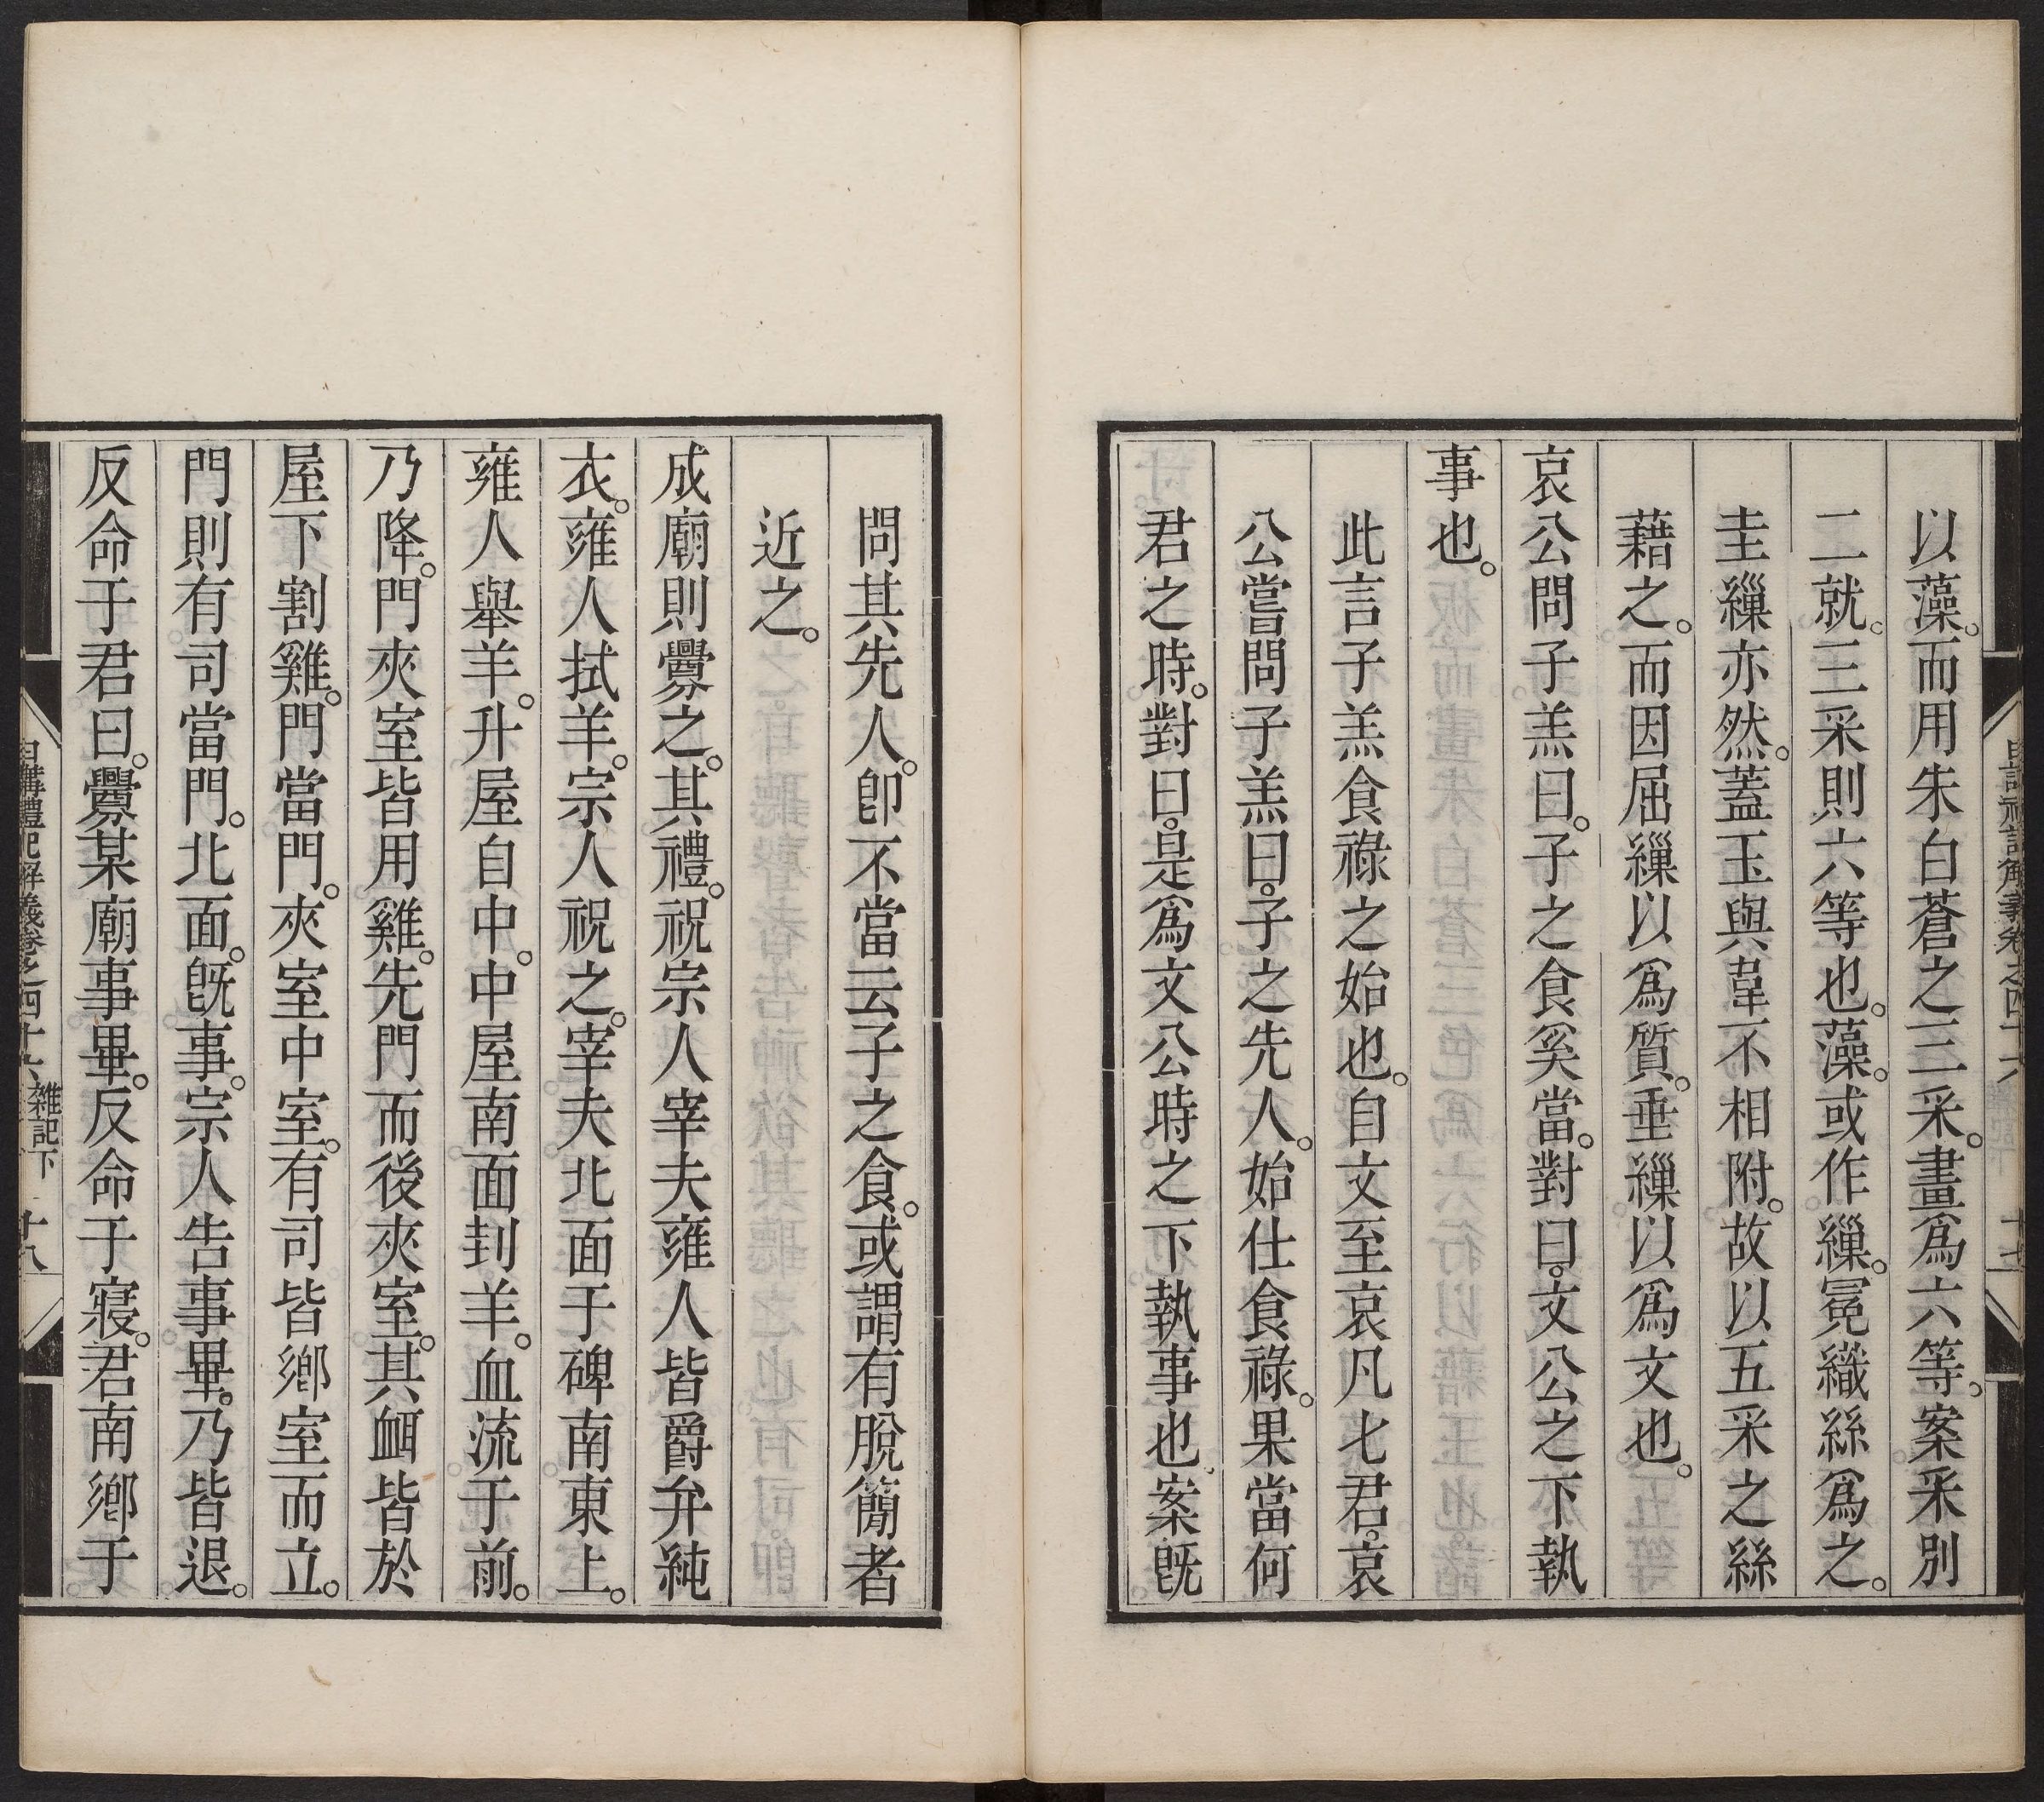 以藻。而用朱白蒼之三采。畫爲六等。案采別
二就。三采則六等也。藻。或作繅。冕織絲爲之。
圭繅亦然。蓋玉與韋不相附。故以五采之絲
藉之。而因屈繅以爲質。垂繅以爲文也。
哀公問子羔曰。子之食奚當。對曰。文公之下執
事也。
此言子羔食祿之始也。自文至哀凡七君。哀
公嘗問子羔曰。子之先人。始仕食祿。果當何
君之時。對曰。是爲文公時之下執事也。案旣
問其先人。卽不當云子之食。或謂有脫簡者
近之。
成廟則釁之。其禮。祝宗人宰夫雍人皆爵弁純
衣。雍人拭羊。宗人祝之。宰夫北面于碑南東上。
雍人舉羊。升屋自中。中屋南面刲羊。血流于前。
乃降。門夾室皆用雞。先門而後夾室。其衈皆於
屋下割雞。門當門。夾室中室。有司皆鄉室而立。
門則有司當門。北面。旣事。宗人告事畢。乃皆退。
反命于君曰。釁某廟事畢。反命于寢。君南鄉于
日講禮記解義卷之四十六 雜記下 十八